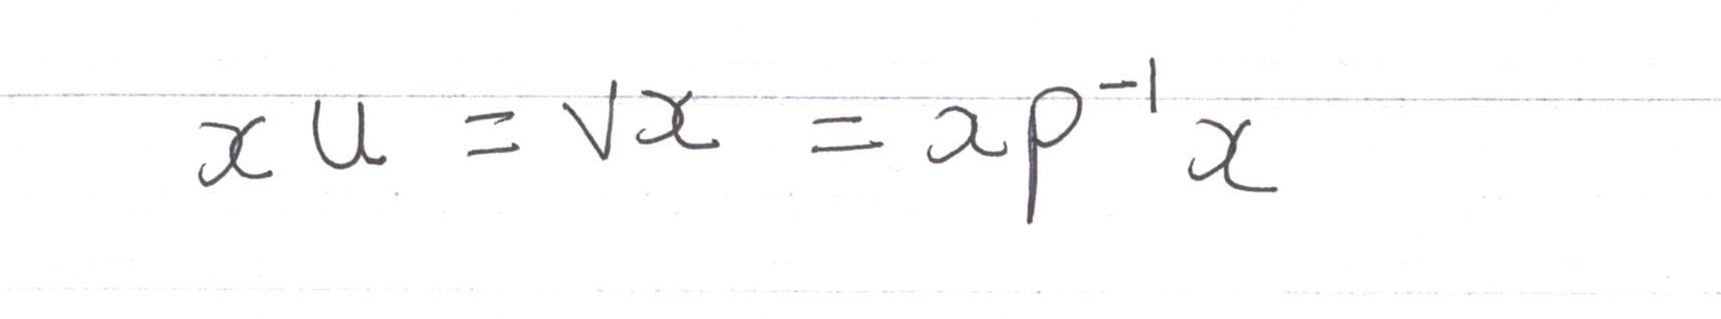 x u = √x = xp⁻¹x